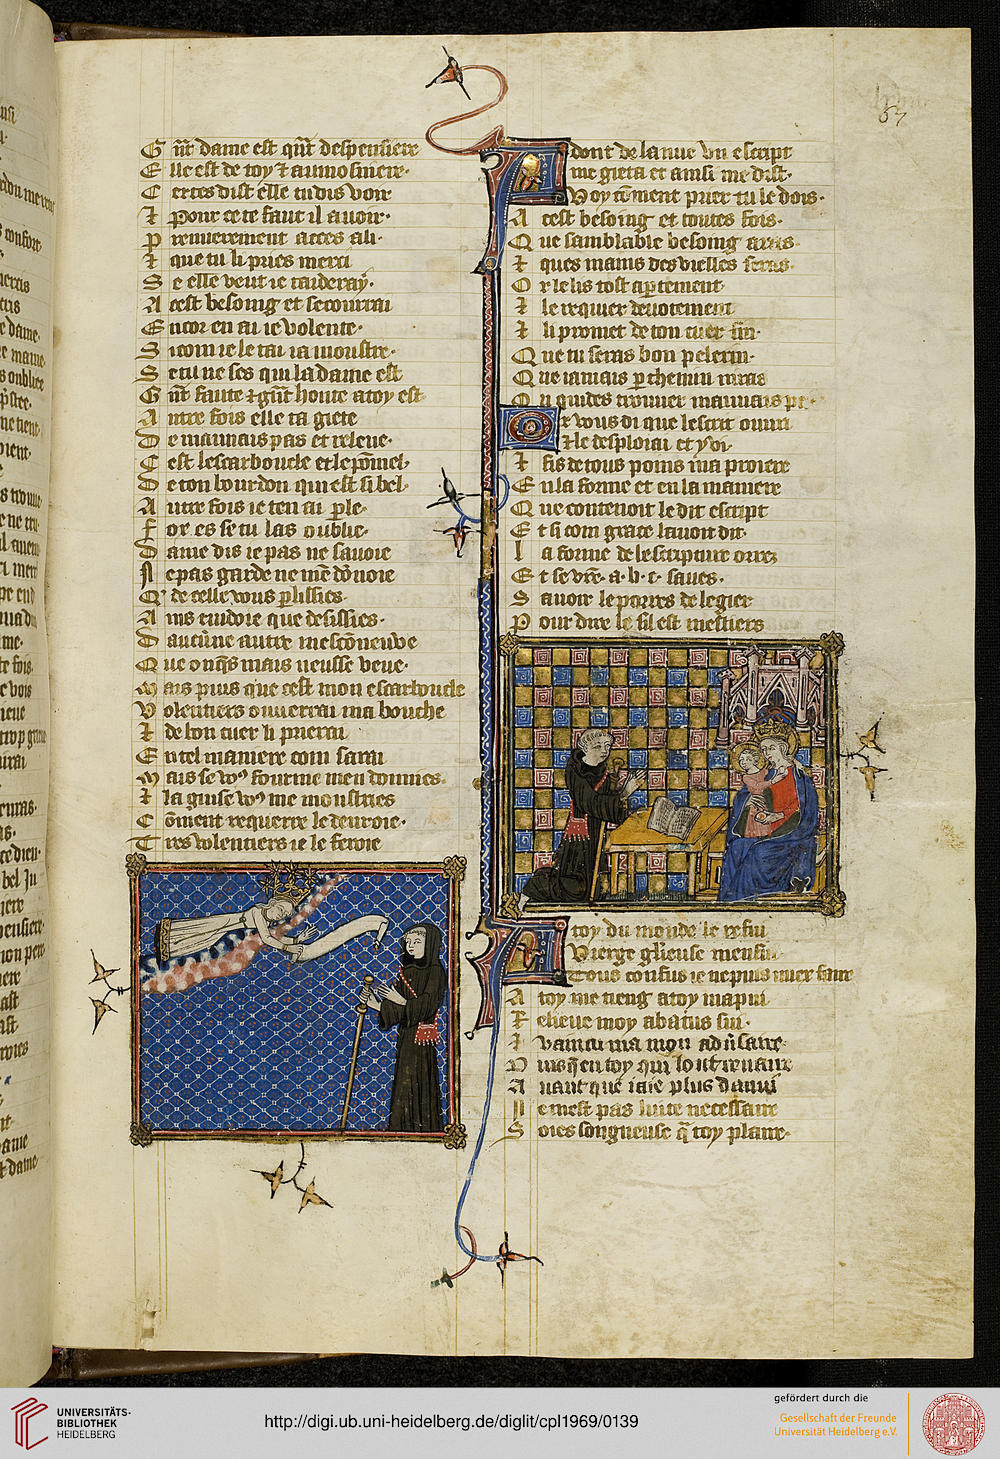 67
G nt dame est qnt despensiere
E lle est de toy ⁊ aumosniere·
C ertes dist elle tu dis voir
⁊ pour ce te faut il auoir·
P remierement acces a li·
⁊ que tu li pries merci
S e elle veut ie taideray·
A cest besoing et secourrai
E ncor en ai ie volente·
S icom ie le tai ia moustre·
S e tu ne ses qui la dame est
G nt faute ⁊ gnt honte a toy est
A utre fois elle ta giete
D e mauuais pas et releue·
C est lescarboucle et le pōmel·
D e ton bourdon qui est si bel·
A utre fois ie ten ai ple·
F ol es se tu las oublie·
D ame dis ie pas ne sauoie
N e pas garde ne men dōnoie
Q de celle vous plissies·
A ins cuidoie que desissies·
D aucune autre mescōneue
Q ue onqs mais neusse veue·
M ais puis que cest mon escarboucle
V olentiers ouuerrai ma bouche
⁊ de bon cuer li prierai
E n tel maniere com sarai
M ais se vo fourme men donnies·
⁊ la guise vo me moustries
C ōment requerre le deuroie·
T res volentiers ie le feroie
A dont de la nue vn escript
me gieta et ainsi me dist·
Voy cōment prier tu le dois·
A cest besoing et toutes fois·
Q ue samblable besoing aras·
⁊ ques mains des vielles seras·
O r le lis tost apertement·
⁊ le requier deuotement
⁊ li promet de ton cuer fin·
Q ue tu seras bon pelerin·
Q ue iamais p chemin niras
O u cuides trouuer mauuais pas·
Or vous di que lescrit ouuri
⁊ le desploiai et y vi·
⁊ fis de tous poins ma proiere
E n la forme et en la maniere
Q ue contenoit le dit escript
E t si com grace lauoit dit·
L a forme de lescripture orrez
E t se vre· a· b· c· saues·
S auoir le porres de legier
P our dire le sil est mestiers
A toy du monde le refui
Vierge glieuse men fui
Tous confus ie ne puis miex faire
A toy me tieng a toy mapui
R elieue moy abatus sui·
⁊ vaincu ma mon aduersaire·
P uis q en toy ont
A uant que iaie plus danui
N e mest pas luite necessaire
S oies songneuse q toy plaire·
UNIVERSITÄTS-
BIBLIOTHEK
HEIDELBERG
http://digi.ub.uni-heidelberg.de/diglit/cpl1969/0139
gefördert durch die
Gesellschaft der Freunde
Universität Heidelberg e.V.